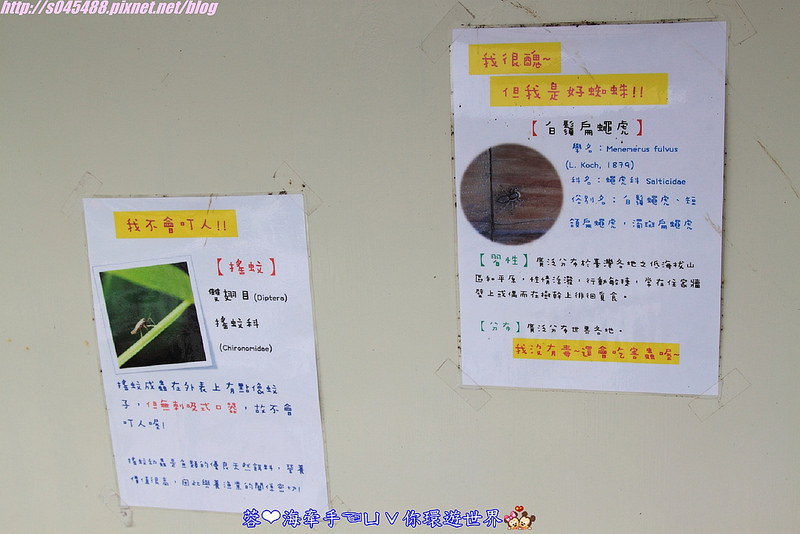 http://s045488.pixnet.net/blog
我不會叮人!!
【搖蚊】
雙翅目(Diptera)
搖蚊科
(Chironomidae)
搖蚊成蟲在外表上有點像蚊
子，但無刺吸式口器，故不會
叮人喔!
搖蚊幼蟲是魚類的優良天然餌料，營養
價值很高，因此與養漁業的關係密切!
我很醜~
但我是好蜘蛛!!
【白鬚扁蠅虎】
學名：Menemerus fulvus
(L. Koch, 1879)
科名：蠅虎科 Salticidae
俗別名：白鬚蠅虎、短
頷扁蠅虎，濁斑扁蠅虎
【習性】廣泛分布於臺灣各地之低海拔山
區和平原，性情活潑，行動敏捷，常在住家牆
壁上或偶而在樹幹上徘徊覓食。
【分布】廣泛分布世界各地。
我沒有毒~還會吃害蟲喔~
蓉❤海牽手☜ㄩㄥ你環遊世界